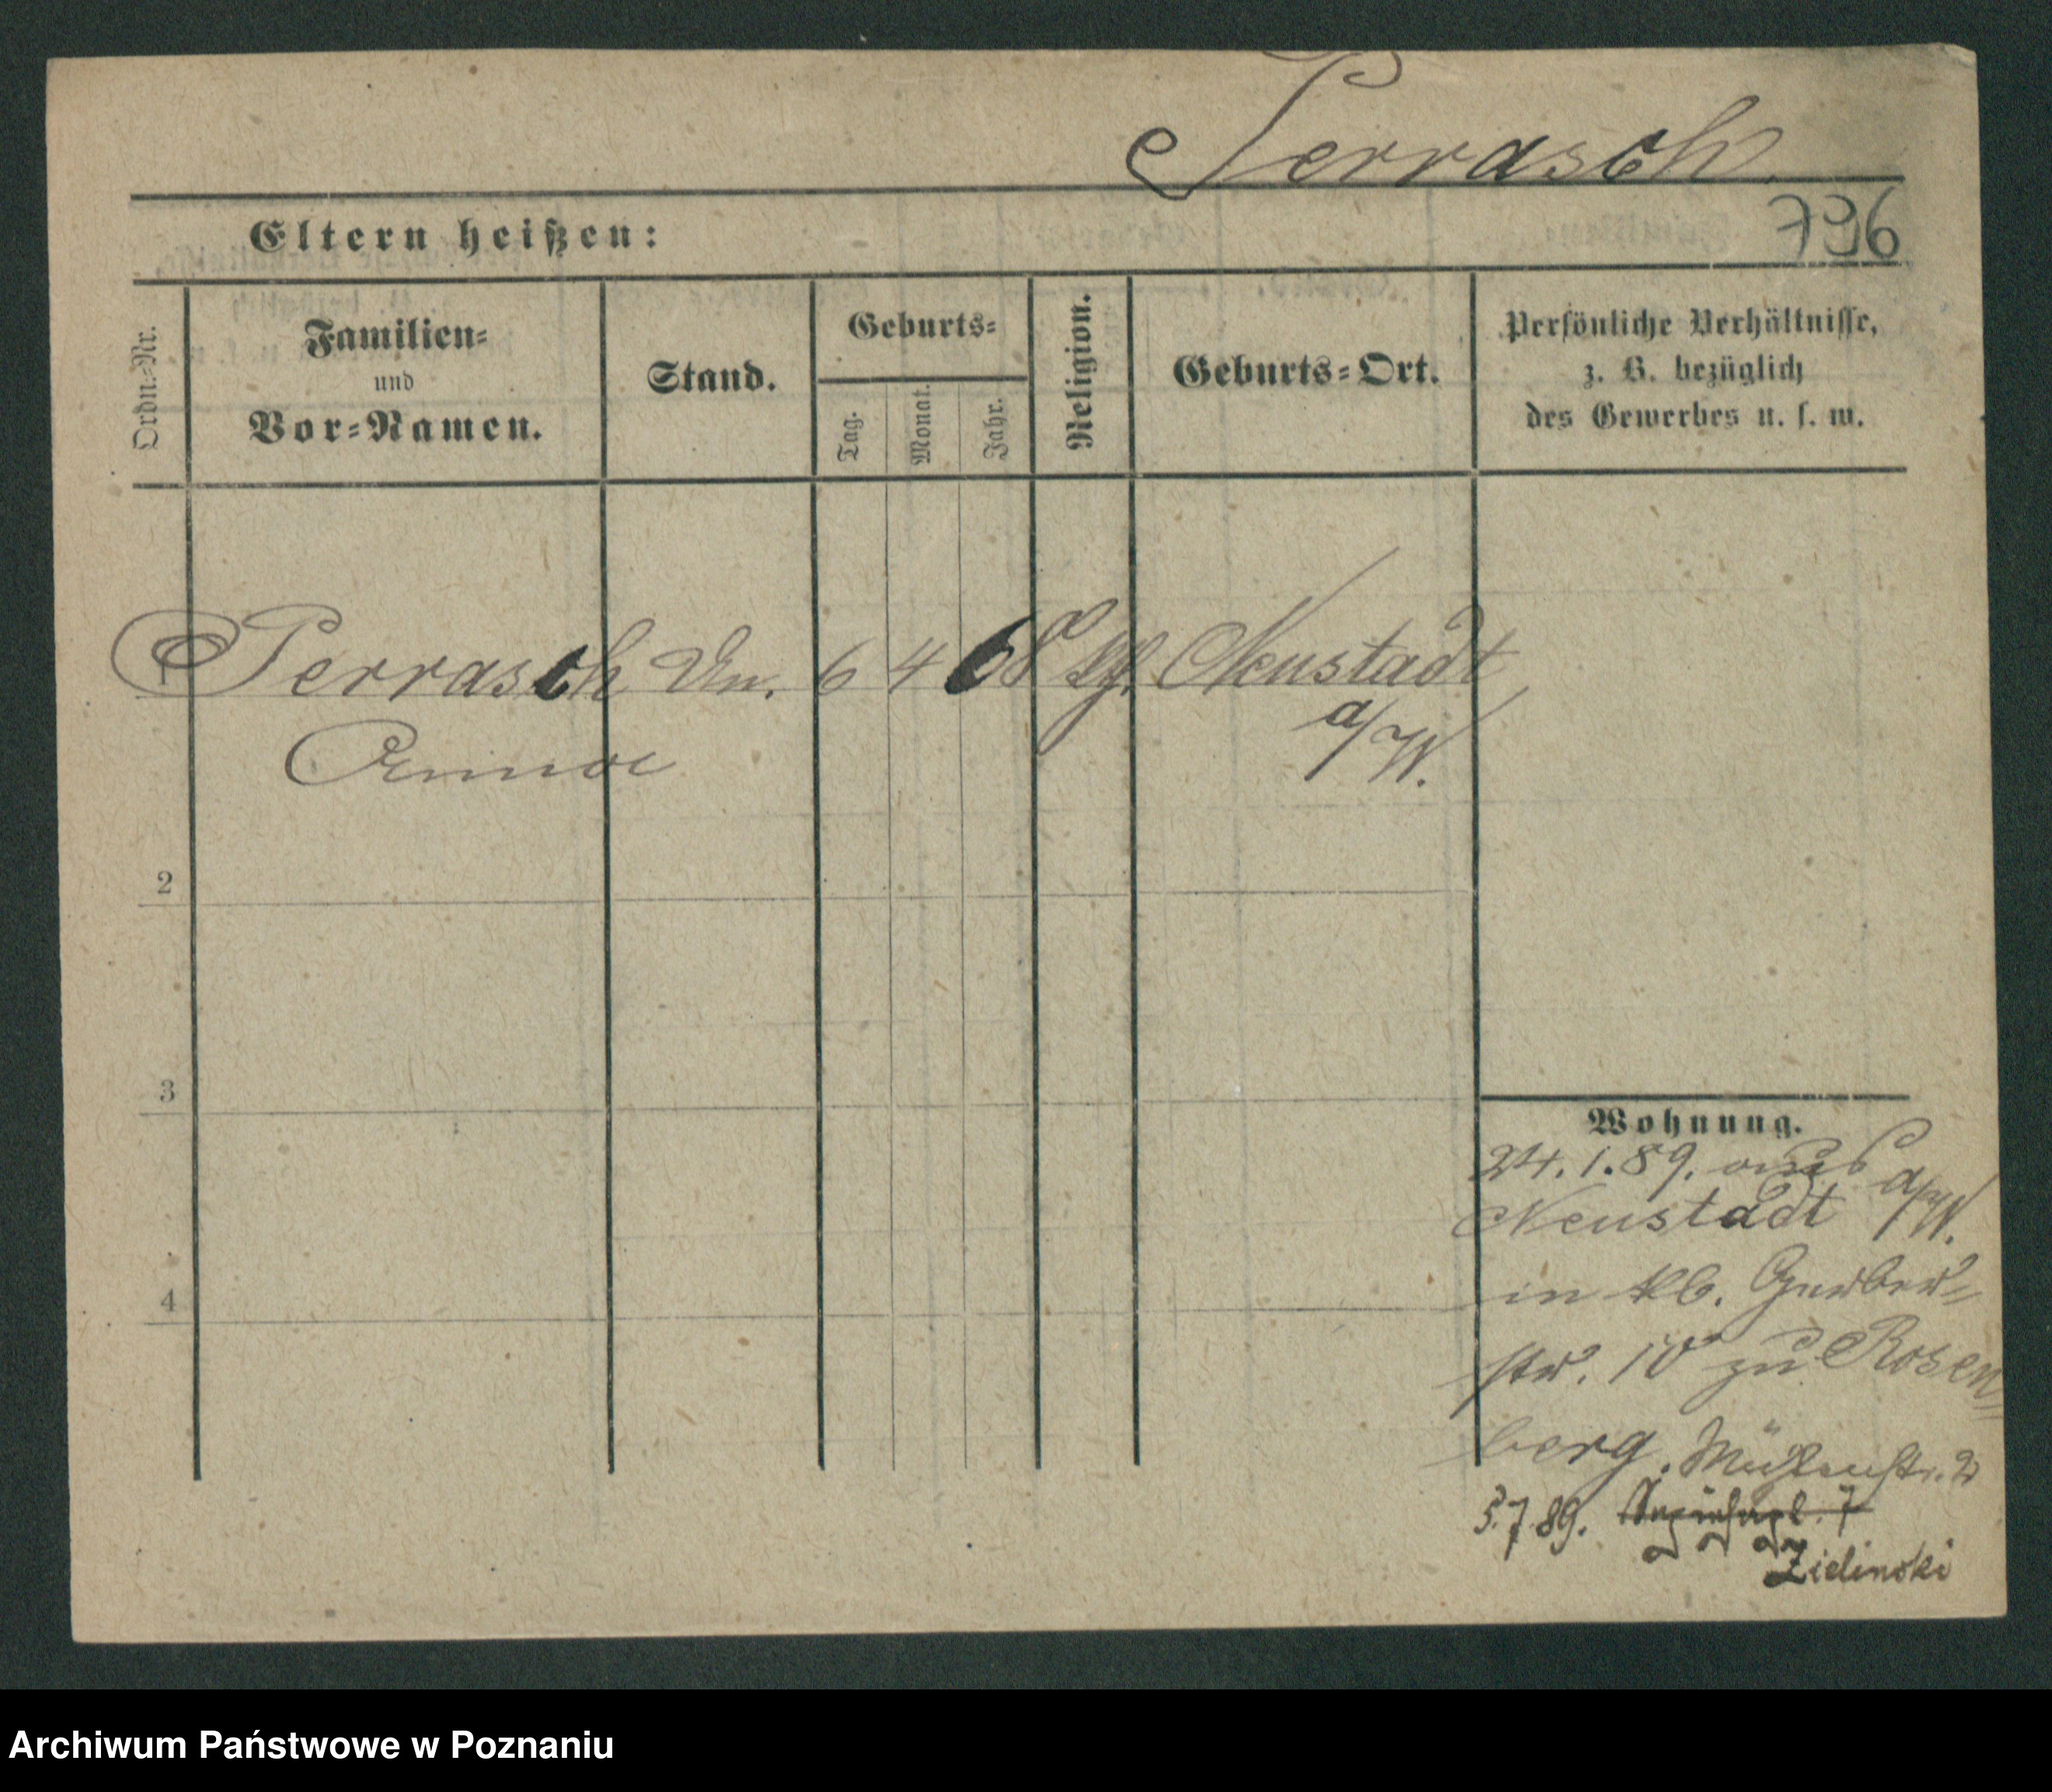 Perrasch
796
Eltern heißen:
Ordn.-Nr.
Familien-
und
Vor-Namen.
Stand.
Geburts-
Tag.
Monat.
Jahr.
Religion.
Geburts-Ort.
Persönliche Verhältnisse,
z. B. bezüglich
des Gewerbes u. s. w.
1 Perrasch Un. 6 4 68 Neustadt
a/W.
Anna
2
3
4
Wohnung.
24.1.89. aus
Neustadt a/W.
in Gerber-
str. 10 zu Rosen
berg. Mühlenstr.
5.7.89. 7
Zielinski
Archiwum Państwowe w Poznaniu